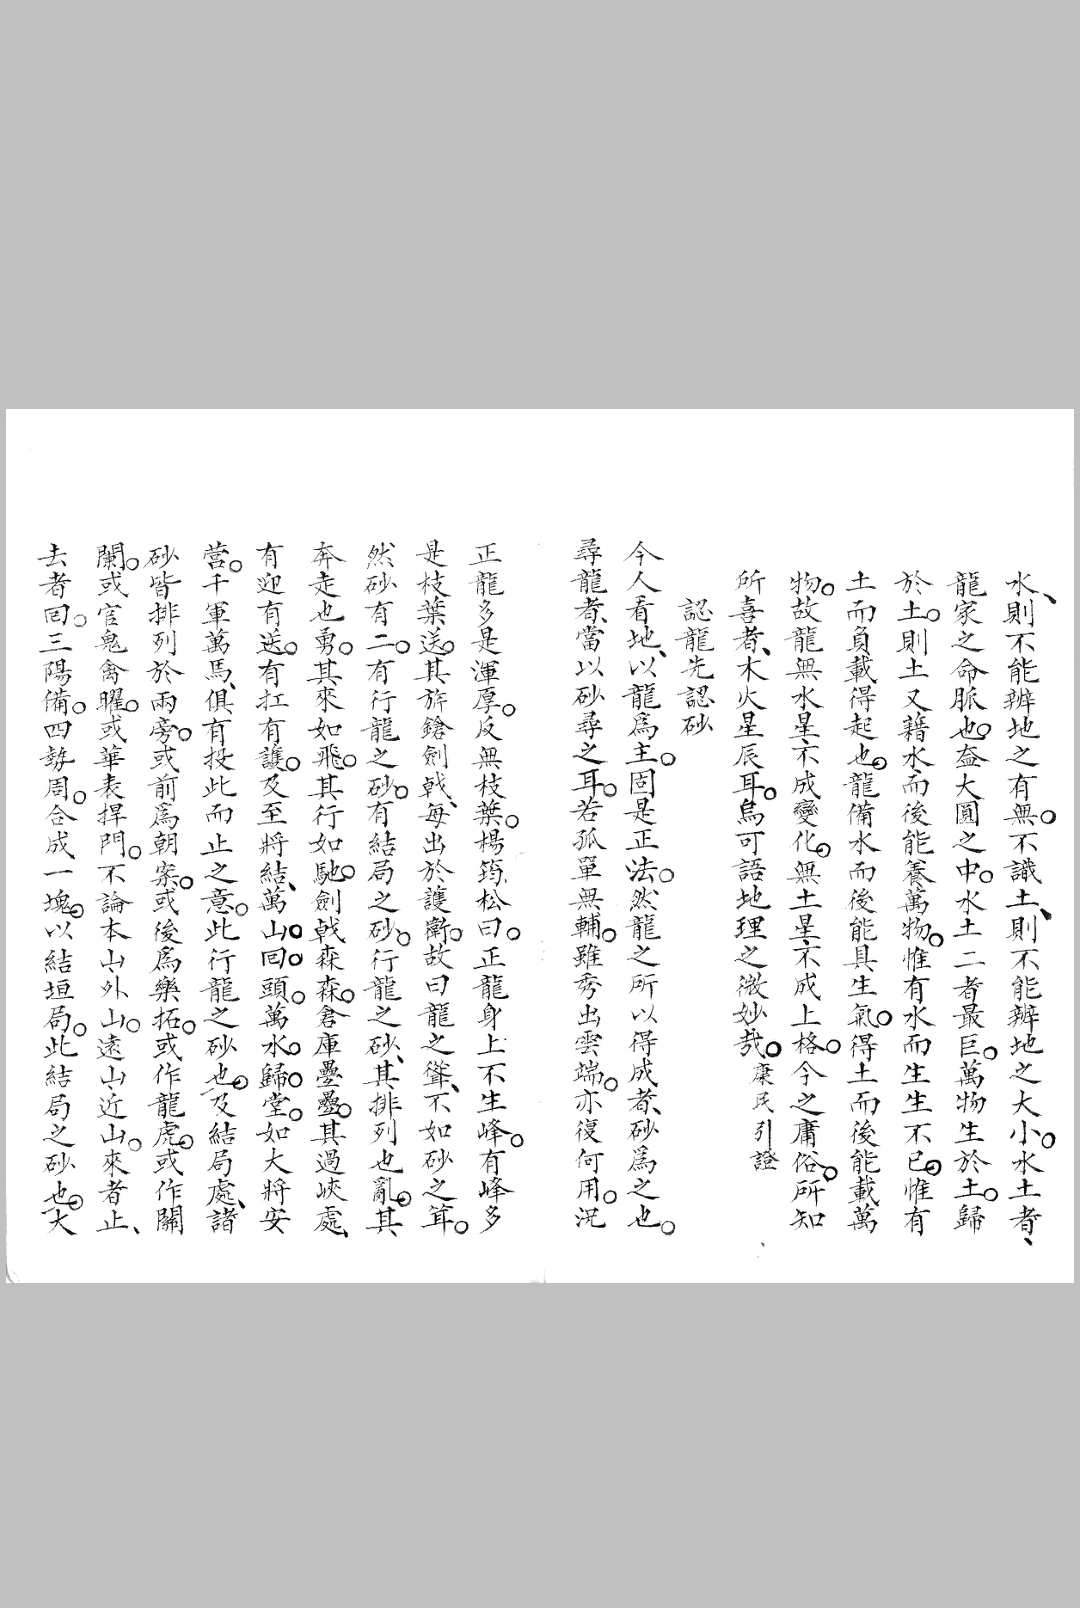 水、則不能辨地之有無。不識土、則不能辨地之大小。水土者、
龍家之命脈也。盖大圓之中。水土二者最巨。萬物生於土。歸
於土。則土又藉水而後能養萬物。惟有水而生生不已。惟有
土而負載得起也。龍備水而後能具生氣。得土而後能載萬
物。故龍無水星、不成變化。無土星、不成上格。今之庸俗。所知
所喜者、木火星辰耳。烏可語地理之微妙哉。康民引證
認龍先認砂
今人看地、以龍爲主。固是正法。然龍之所以得成者、砂爲之也。
尋龍者、當以砂尋之耳。若孤單無輔。雖秀出雲端。亦復何用。況
正龍多是渾厚。反無枝葉。楊筠松曰。正龍身上不生峰。有峰多
是枝葉送。其旂鎗劍戟、每出於護衛。故曰龍之聳、不如砂之耸。
然砂有二。有行龍之砂。有結局之砂。行龍之砂、其排列也亂。其
奔走也勇。其來如飛。其行如馳。劍戟森森。倉庫疊疊。其過峽處、
有迎有送。有扛有護。及至將結、萬山。回。頭。萬水。歸。堂。如大將安
營。千軍萬馬、俱有投此而止之意。此行龍之砂也。及結局處、諸
砂皆排列於兩旁。或前爲朝案。或後爲樂拓。或作龍虎。或作關
闌。或官鬼禽曜。或華表捍門。不論本山外山。遠山近山。來者止、
去者回。三陽備。四勢周。合成一塊。以結垣局。此結局之砂也。大